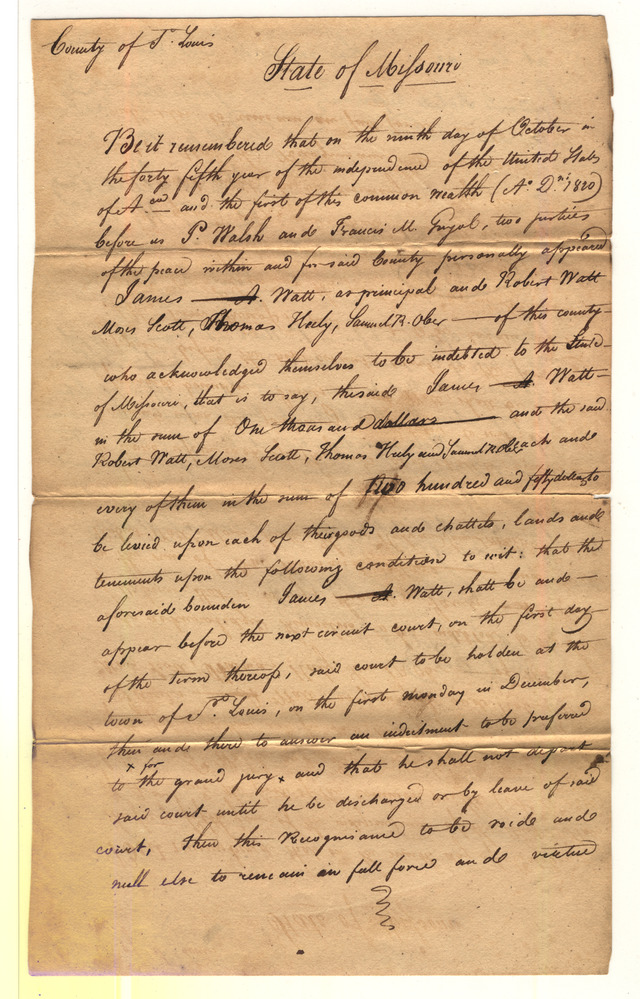 County of St. Louis
State of Missouri
Be it remembered that on the ninth day of October in
the forty fifth year of the independence of the United States
of A. and the first of this common wealth (Ao. Dni. 1820)
before us P. Walsh ande Francis M. two justices
of the peace within and for said County personally appeared
James A. Watt, as principal ande Robert Watt
Moses Scott, Thomas Heely, Samuel R. Ober of this county
who acknowledged themselves to be indebted to the State
of Missouri, that is to say, the saide James A. Watt
in the sum of One thousand dollars and the said
Robert Watt, Moses Scott, Thomas Heely and Samuel R. Ober each ande
every of them in the sum of two hundred and fifty dollars to
be levied upon each of their goods ande chattels, lands ande
tenements upon the following condition to wit: that the
aforesaid bounden James A. Watt, shall be ande
appear before the next circuit court, on the first day
of the term thereof, said court to be holden at the
town of St. Louis, on the first monday in December,
then ande there to answer an indictment to be preferred
x for
to the grand jury x and that he shall not depart
said court until he be discharged or by leave of said
court, then this Recognisance to be voide ande
null else to remain in full force ande virtue